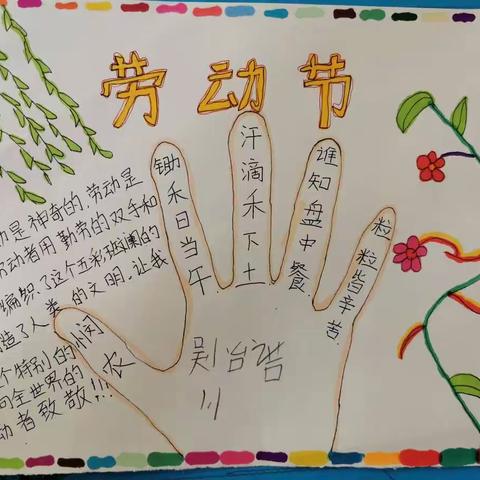 劳动节
动是神奇的,劳动是
动者用勤劳的双手和
编织了这个五彩斑斓的
造了人类的文明。让我
个特别的
向全世界的
动者致敬!!!
悯农
锄禾日当午
汗滴禾下土
谁知盘中餐
粒粒皆辛苦
吴